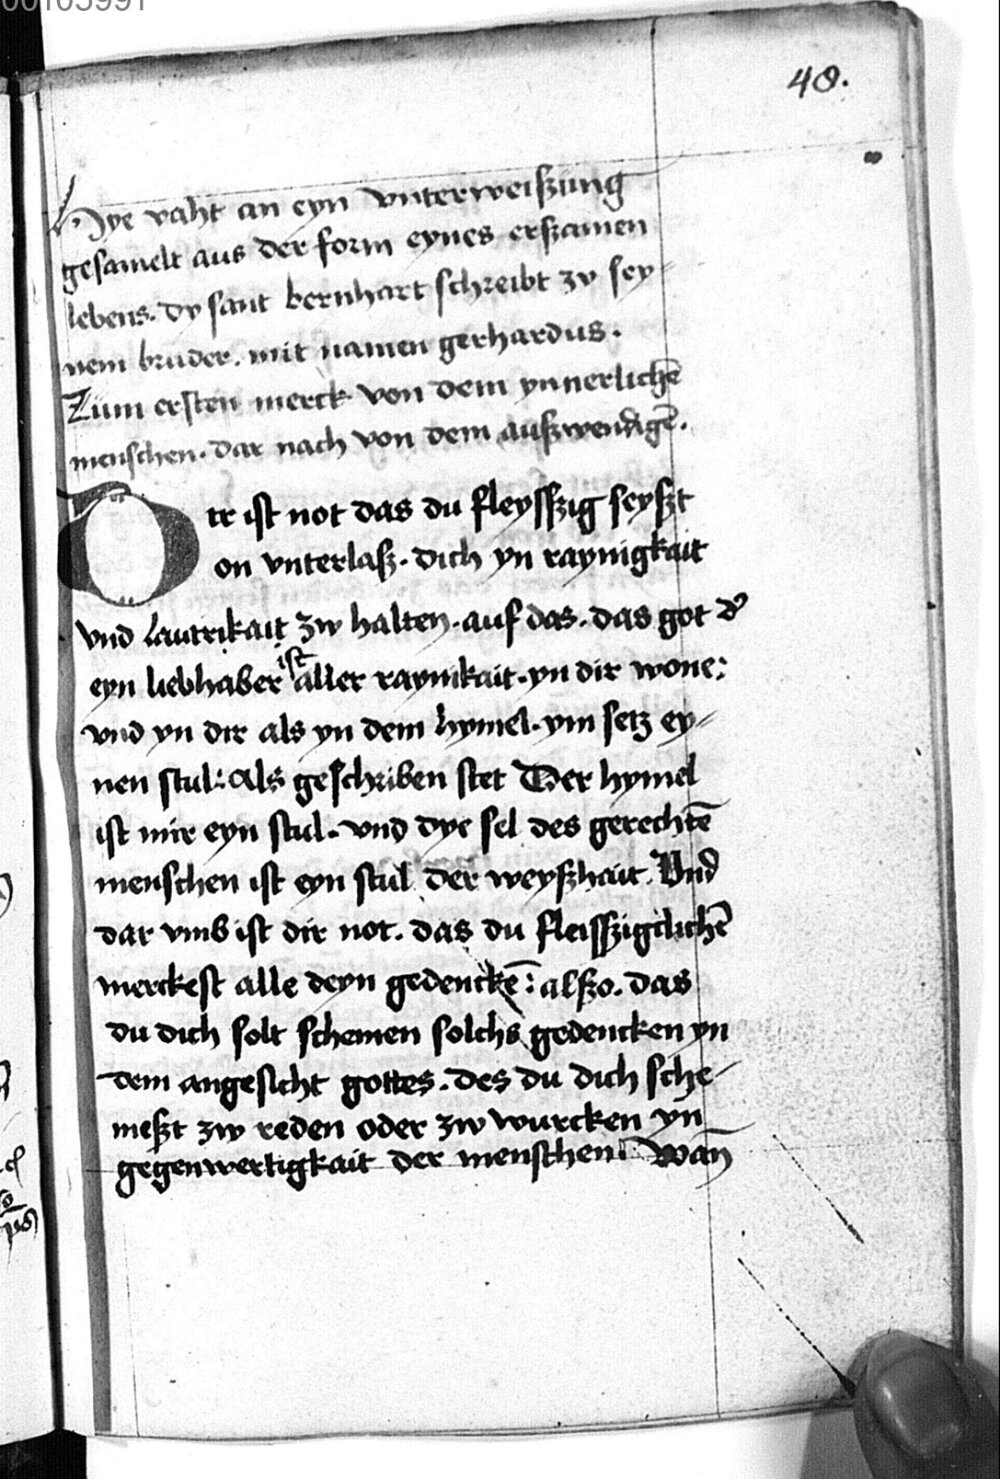 00105991
48.
Hye vaht an eyn vnterweißung
gesamelt aus der form eynes erszamen
lebens. dy sant bernhart schreibt zv sey=
nem bruder. mit namen gerhardus.
Zum ersten merck von dem ynnerlichē
menschen. dar nach von dem auszwendigē.
Dir ist not das du fleysszig seyszt
on vnterlasz. dich yn raynigkait
vnd lautrikait zw halten. auf das. das got d'
eyn liebhaber ist aller raynikait. yn dir wone:
vnd yn dir als yn dem hymel. ym setz ey=
nen stul: als geschriben stet Der hymel
ist mir eyn stul. vnd dye sel des gerechtē
menschen ist eyn stul der weyszhait. Vnd
dar vmb ist dir not. das du fleisszigclichē
merckest alle deyn gedenckē: alszo. das
du dich solt schemen solchs gedencken yn
dem angesicht gottes. des du dich sche=
meszt zw reden oder zw wurcken yn
gegenwertigkait der menschen. Wan̄